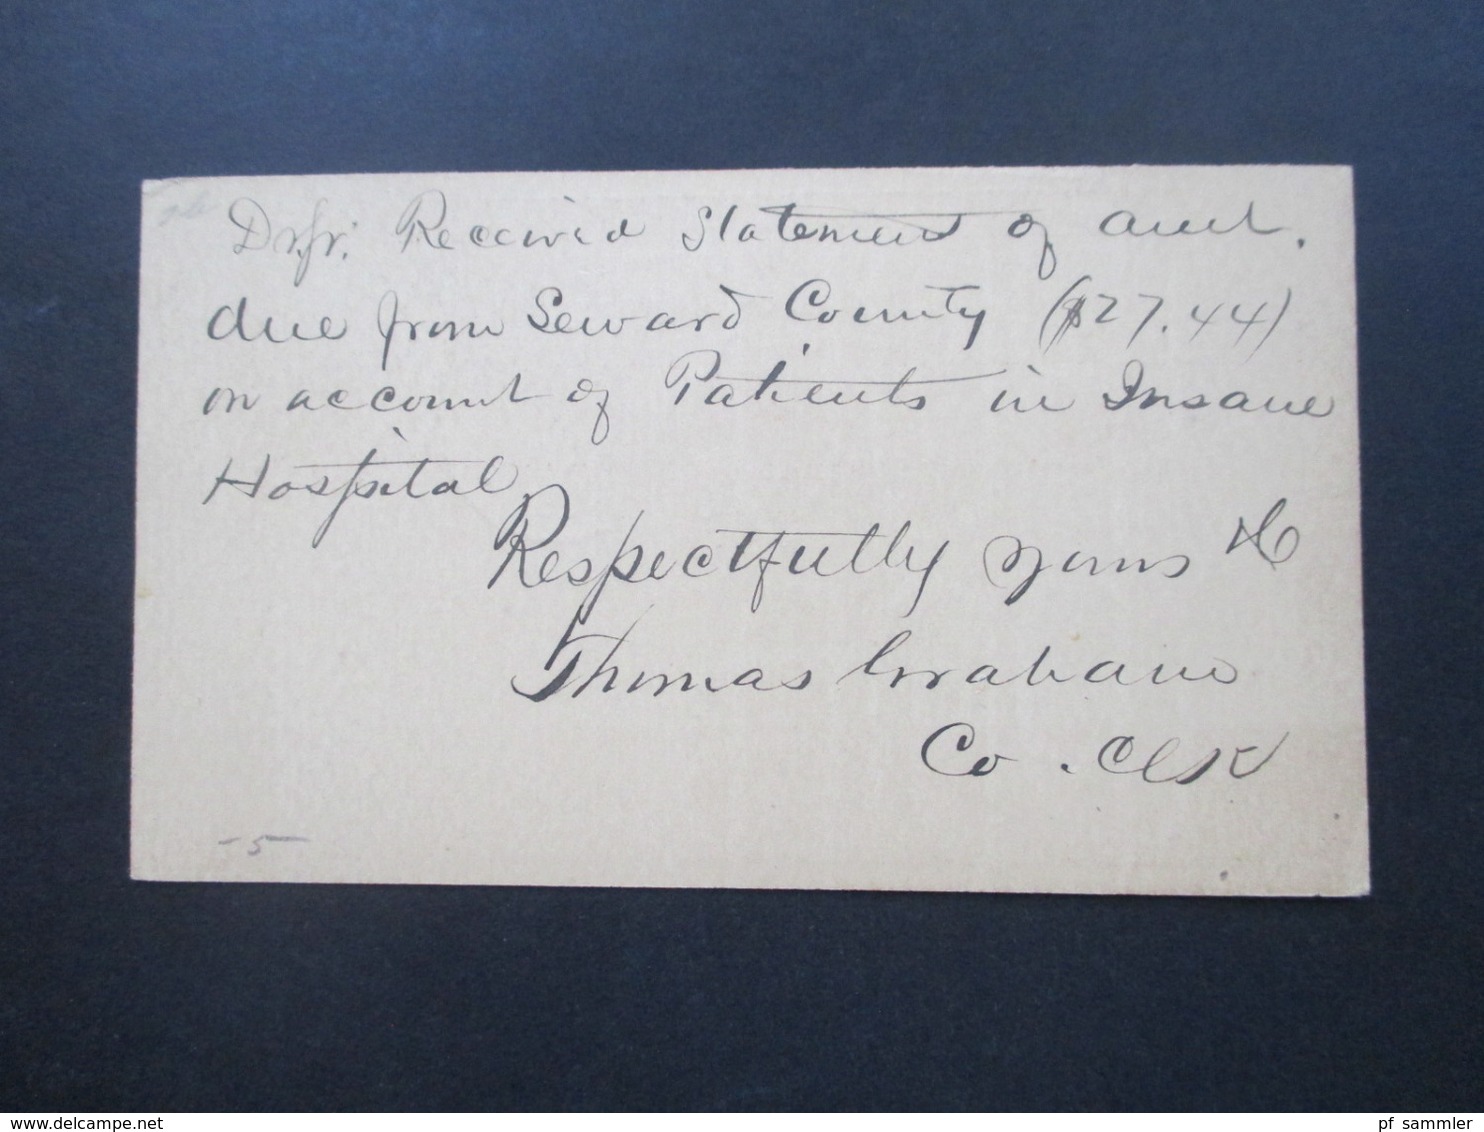 Dr Sir: Received Statement of amt.
due from Seward County ($27.44)
on account of Patients in Insane
Hospital
Respectfully Yours &c
Thomas Graham
Co. Clk
- 5 -
www.delcampe.net
pf_sammler